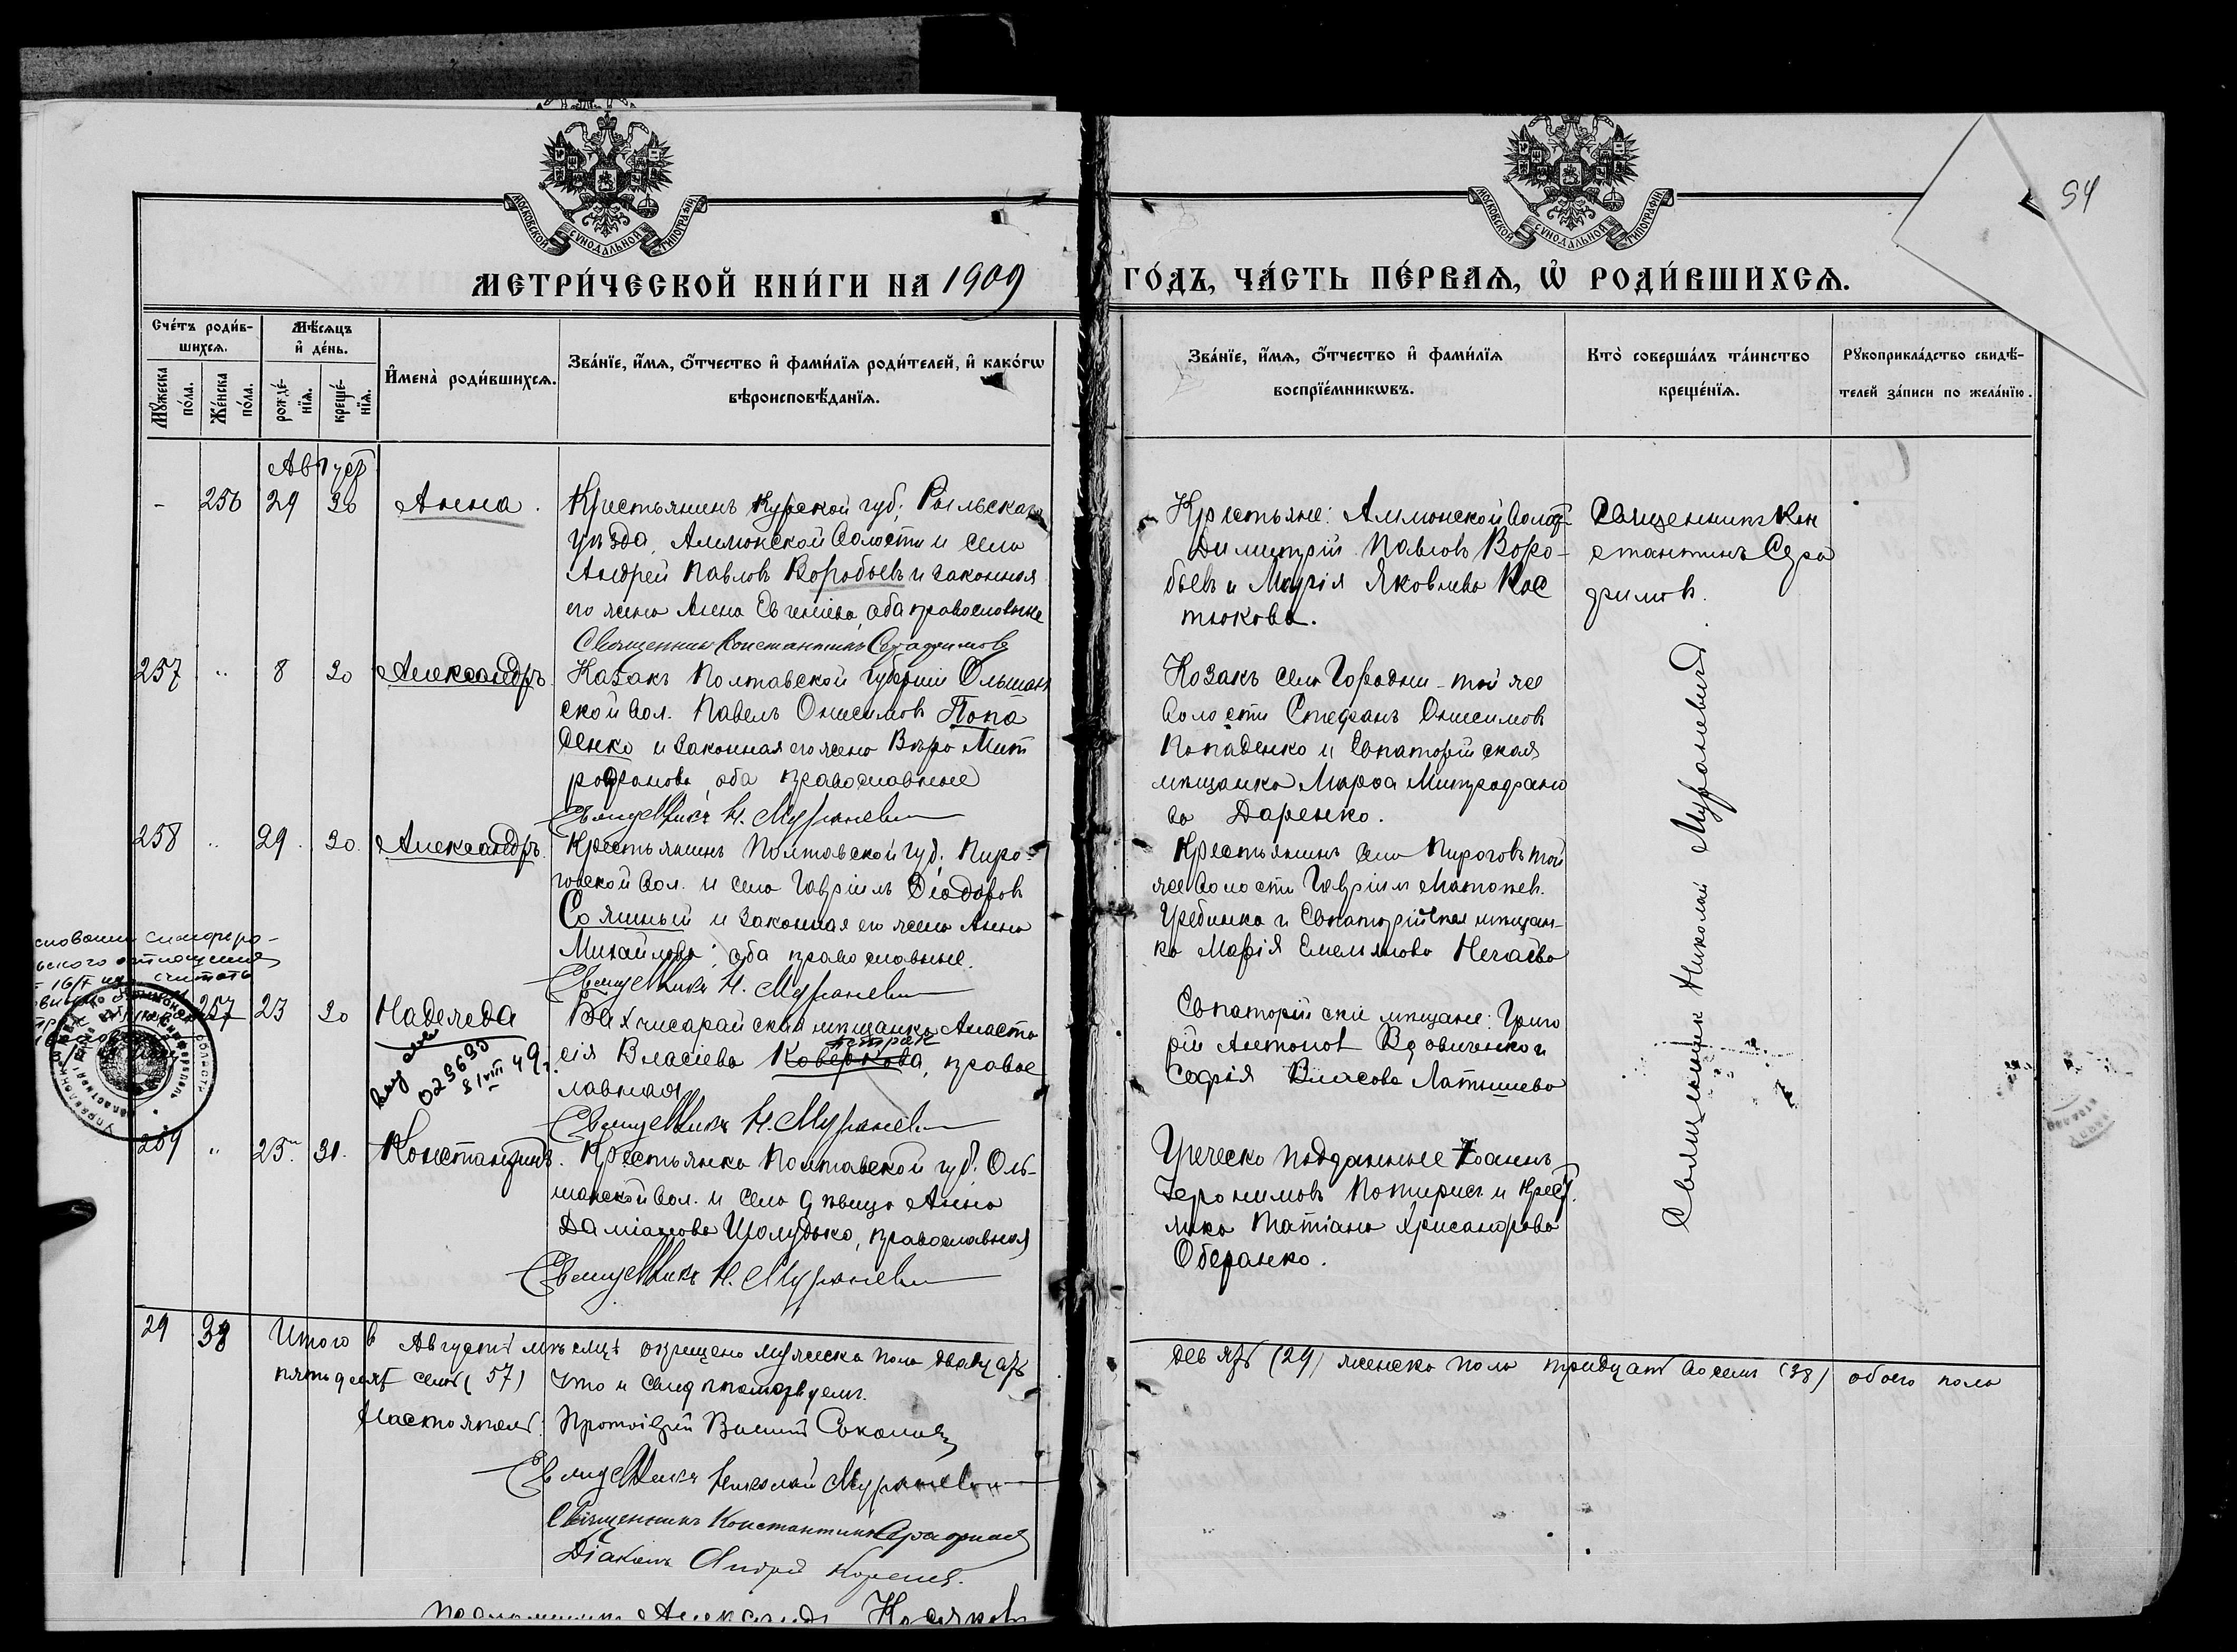 94
МОСКОВСКОЙ СѴНОДАЛЬНОЙ ТИПОГРАФІИ
МОСКОВСКОЙ СѴНОДАЛЬНОЙ ТИПОГРАФІИ
МЕТРИ́ЧЕСКОЙ КНИ́ГИ НА 1909 ГО́ДЪ, ЧА́СТЬ ПЕ́РВАѦ, Ѡ҆ РОДИ́ВШИХСѦ.
Сче́тъ роди́в-
шихсѧ.
Мꙋ́жеска по́ла.
Же́нска по́ла.
Мѣ́сѧцъ
и҆ де́нь.
рожде́-
нїѧ.
креще́-
нїѧ.
И҆мена̀ роди́вшихсѧ.
Зва́нїе, и҆́мѧ, ѻ҆́тчество и҆ фами́лїѧ роди́телей, и҆ како́гѡ
вѣроисповѣ́данїѧ.
Зва́нїе, и҆́мѧ, ѻ҆́тчество и҆ фами́лїѧ
воспрїе́мникѡвъ.
Кто̀ соверша́лъ та́инство
креще́нїѧ.
Рꙋкоприкла́дство свидѣ́-
телей за́писи по жела́нїю.
Август
- 256 29 30 Анна.
Крестьянинъ Курской губ. Рыльскаго
уѣзда, волости и села
Андрей Павловъ Воробьевъ и законная
его жена Анна Евгеніева, оба православные
Священникъ Константинъ Серафимовъ
Крестьяне:
Димитрій Павловъ Воро-
бьевъ и Марія Яковлева Кос
тюкова.
Священникъ Кон
стантинъ Сера
фимовъ.
257 " 8 30 Александръ
Казакъ Полтавской губерніи Ольшан
ской вол. Павелъ Онисимовъ Попа
денко и законная его жена Вѣра Мит
рофанова, оба православные
Священникъ Н. Мураневич
Козакъ села Городни - той же
волости Стефанъ Онисимовъ
Попаденко и Евпаторійская
мѣщанка Марѳа Митрофано
ва Даренко.
Священник Николай Мураневичъ
258 " 29 30 Александръ.
Крестьянинъ Полтавской губ. Пиро-
говской вол. и села Гавріилъ Ѳеодоровъ
и законная его жена Анна
Михайлова; оба православные.
Священникъ Н. Мураневич
Крестьянинъ села Пироговъ той
же волости Гавріилъ
Гребинка и Евпаторійская мѣщан-
ка Марія Емельянова Нечаева
257 23 30 Надежда
029690
49 г.
Бахчисарайская мѣщанка Анаста
сія Власіева Коверкова, правос
лавная
Священникъ Н. Мураневич
Евпаторійскіе мѣщане: Григо
рій Антоновъ Вдовиченко и
Софія Власова Латышева
259 " 25 31 Константинъ.
Крестьянка Полтавской губ. Оль-
шанской вол. и села Анна
Даміанова Шолудько, православная
Священникъ Н. Мураневич
Греческо подданные Іоаннъ
Іеронимовъ и Крест.
янка Татіана
Оберанко.
29 38 Итого в Августѣ мѣсяцѣ крещено мужеска пола двадцать
девять (29) женска пола тридцать восемь (38) обоего пола
пятьдесят семь (57) Что и свидѣтельствуемъ.
Настоятель: Протоіерей
Священникъ Николай Мураневич
Священникъ Константинъ Серафимов
Діаконъ Андрей
Псаломщикъ Александр